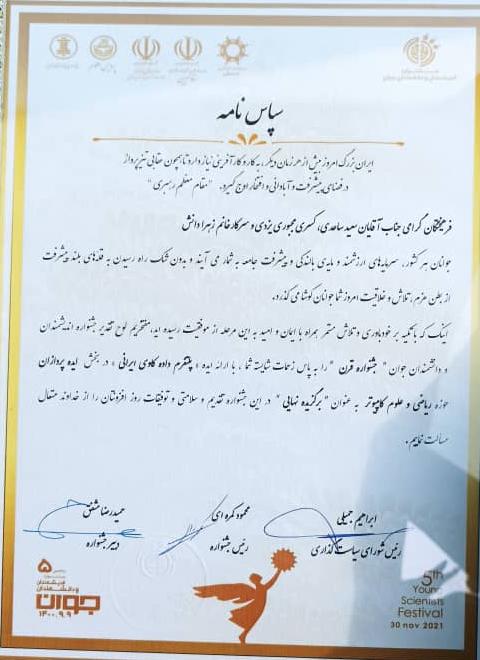 سپاس نامه
ایران بزرگ امروز بیش از هر زمان دیگر، به کار و کارآفرینی نیاز دارد تا همچون عقابی تیزپرواز
در فضای پیشرفت و آبادانی و افتخار اوج گیرد. "مقام معظم رهبری"
فرهیختگان گرامی جناب آقایان سعید ساعدی، کسری مجبوری یزدی و سرکار خانم زهرا دانش
جوانان هر کشور، سرمایه‌های ارزشمند و مایه‌ی بالندگی و پیشرفت جامعه به شمار می آیند و بدون شک راه رسیدن به قله‌های بلند پیشرفت
از بطن عزم، تلاش و خلاقیت امروز شما جوانان کوشا می گذرد.
اینک که با تکیه بر خودباوری و تلاش مستمر همراه با ایمان و امید به این مرحله از موفقیت رسیده اید، مفتخریم لوح تقدیر جشنواره اندیشمندان
و دانشمندان جوان " جشنواره قرن " را به پاس زحمات شایسته شما ، با ارائه ایده « پلتفرم داده کاوی ایرانی » در بخش ایده پردازان
حوزه ریاضی و علوم کامپیوتر به عنوان " برگزیده نهایی " در این جشنواره تقدیم و سلامتی و توفیقات روز افزونتان را از خداوند متعال
مسألت نماییم.
ابراهیم جمیلی
رئیس شورای سیاست گذاری
محمود کمره ای
رئیس جشنواره
حمیدرضا شفق
دبیر جشنواره
۵
جشنواره
اندیشمندان
و دانشمندان
جوان
۱۴۰۰.۹.۹
5th
Young
Scientists
Festival
30 nov 2021